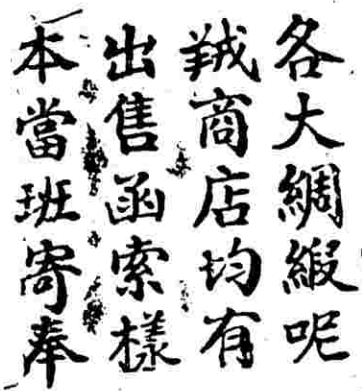 各大綢緞呢
羢商店均有
出售函索樣
本當班寄奉